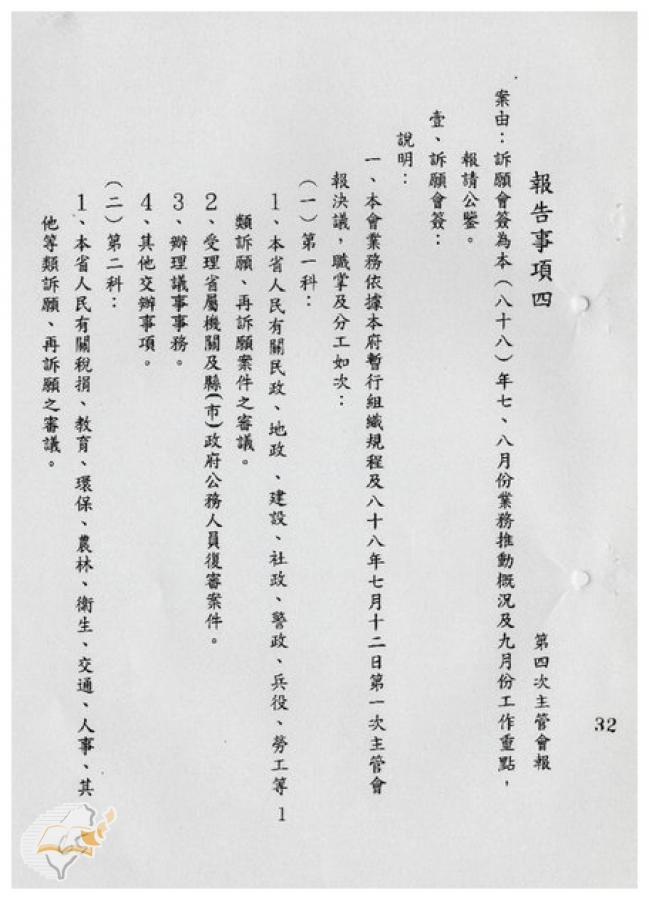 32
第四次主管會報
報告事項四
案由：訴願會簽為本（八十八）年七、八月份業務推動概況及九月份工作重點，
報請公鑒。
壹、訴願會簽：
說明：
一、本會業務依據本府暫行組織規程及八十八年七月十二日第一次主管會
報決議，職掌及分工如次：
（一）第一科：
1、本省人民有關民政、地政、建設、社政、警政、兵役、勞工等1
類訴願、再訴願案件之審議。
2、受理省屬機關及縣(市)政府公務人員復審案件。
3、辦理議事事務。
4、其他交辦事項。
（二）第二科：
1、本省人民有關稅捐、教育、環保、農林、衛生、交通、人事、其
他等類訴願、再訴願之審議。